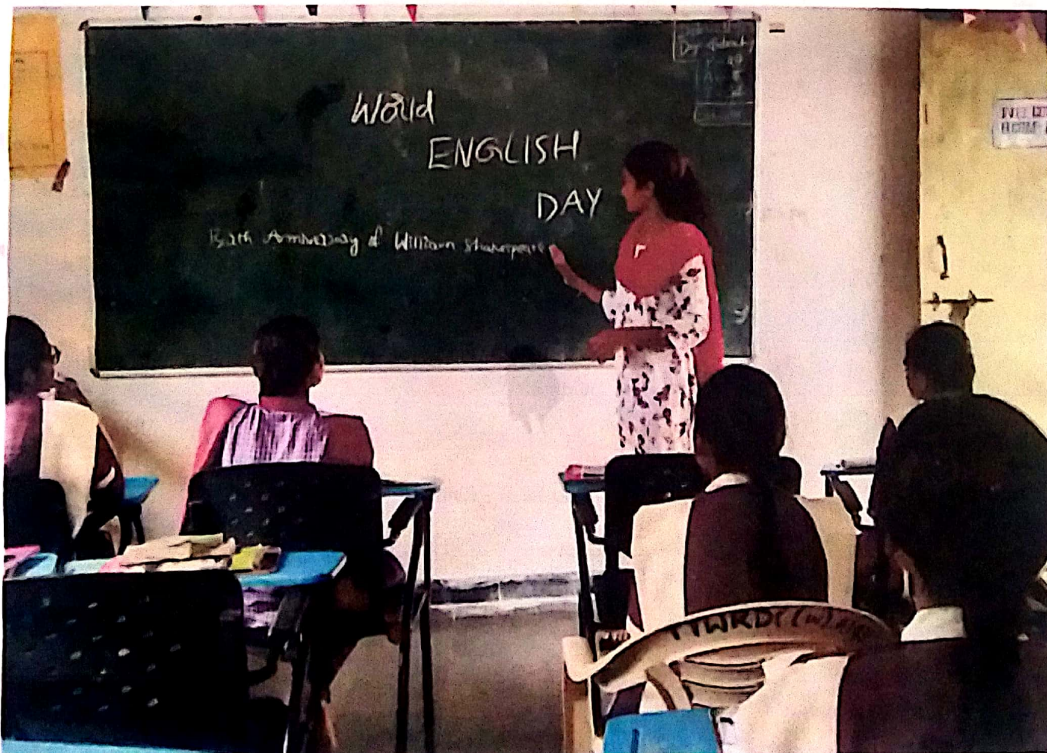 World
ENGLISH
DAY
Birth Anniversary of William Shakespeare
Day
TTWRDC (W)